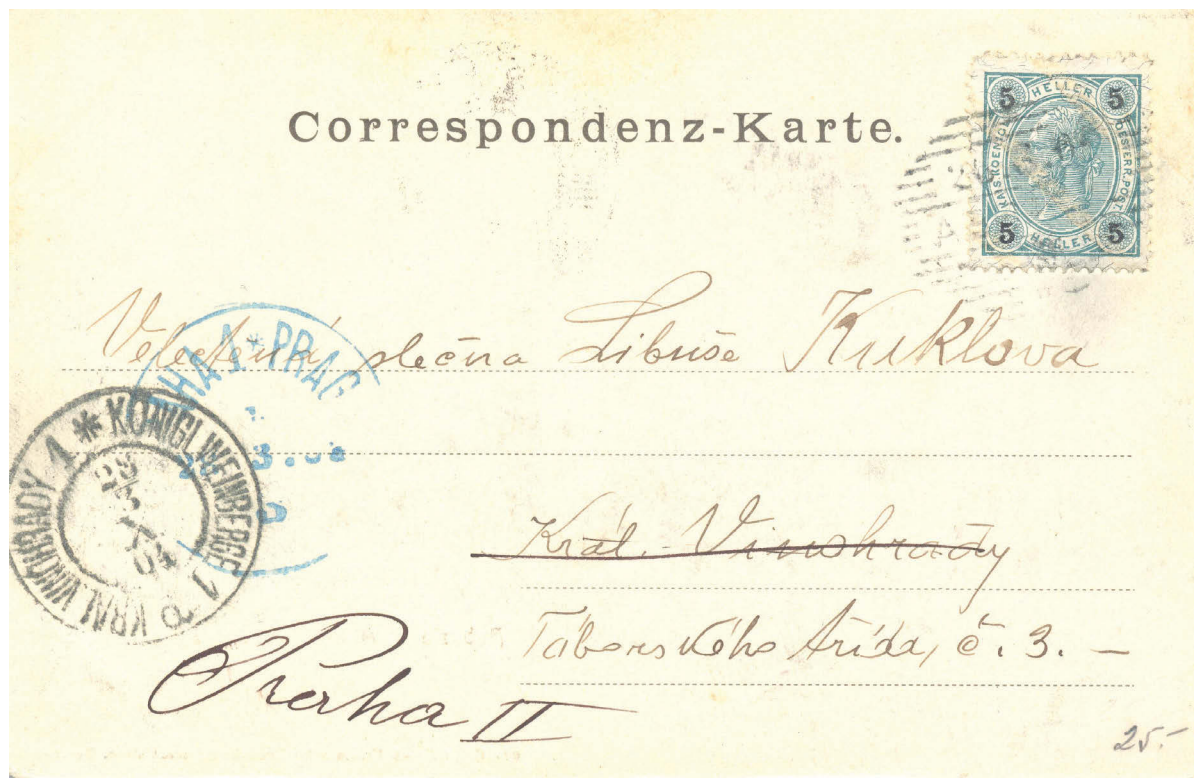 Correspondenz-Karte.
5 HELLER 5
KAIS. KOENIGL. OESTERR. POST.
5 HELLER 5
Velectěná slečna Libuše Kuklova
PRAG
KÖNIGL WEINBERGE 1
KRÁL VINOHRADY 1
Král. Vinohrady
Táborského třída, č. 3. –
Praha II
25.-